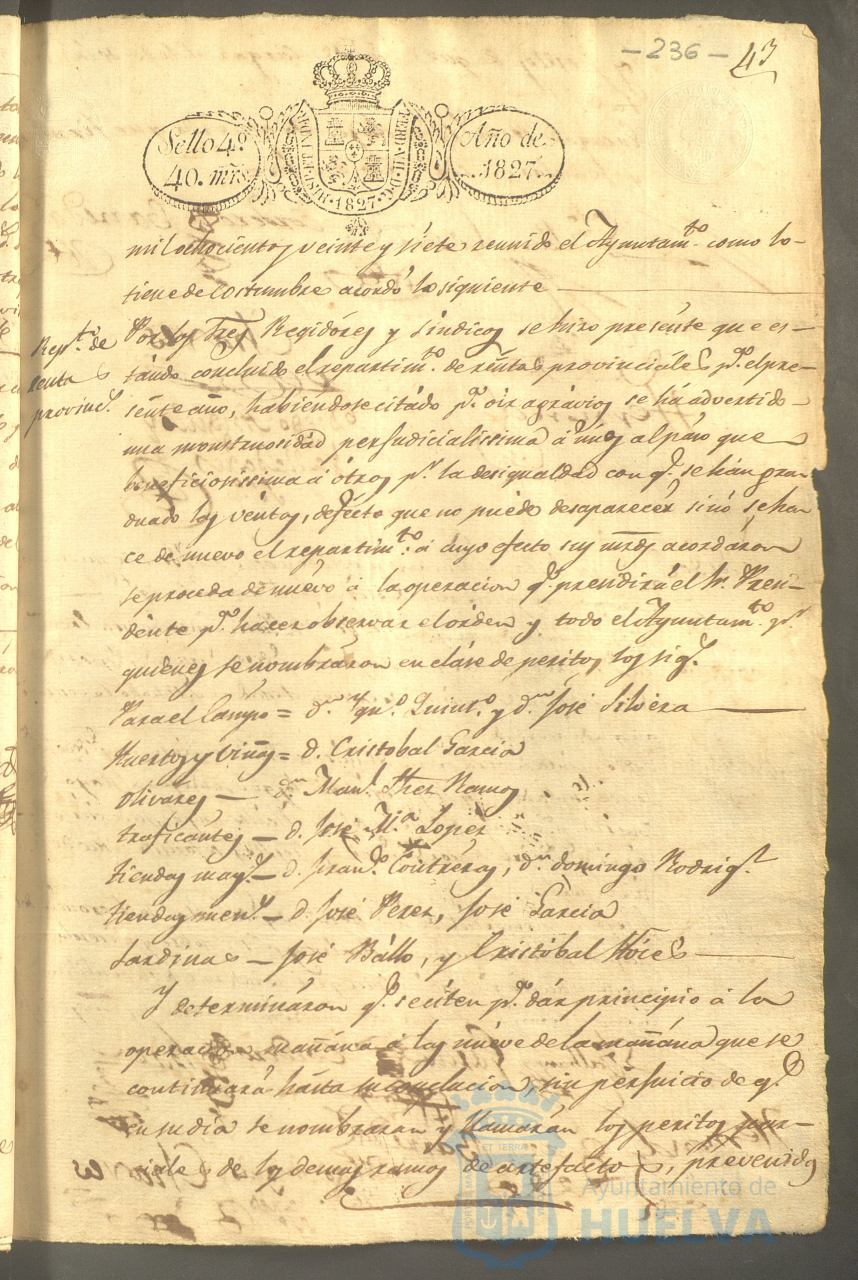 - 236 - 43
Sello 4.º
40. mrs.
HISP. ET IND. R. FERD. VII. D. G. 1827
Año de
1827.
mil ochocientos veinte y siete reunido el Ayuntam.to como lo
tiene de costumbre acordó lo siguiente
Rep.to de
rentas
provinc.s
Por los Sres Regidores y Síndicos se hizo presente que es-
tándo concluido el repartim.to de réntas provinciales p.a el pre-
sénte año, habiéndose citádo p.a oir agrávios se há advertido
una monstruosidad perjudicialíssima á únos al páso que
beneficiosíssima á ótros p.r la desigualdad con q.e se hán gra-
duado las véntas, defécto que no puéde desaparecér sinó se ha-
ce de nuevo el repartim.to á cuyo efecto sus mrds acordáron
se proceda de nuévo á la operacion q.e presidirá el Sr. Presi-
dénte p.a hacer observar el órden y todo el Ayuntam.to p.r
quiénes se nombráron en cláse de peritos los sig.s
Para el Campo = d.n Quint.o y d.n José Silvéra
Huertos y viñas = d. Cristobal Garcia
olivares — d.n Man.l Ramos
traficantes — d. José M.a Lopez
tiendas may.s — d. Fran.co Contreras, d.n domingo Rodrig.z
tiendas men.s — d. José Perez, José Garcia
Sardinas — José Bállo, y Cristóbal
Y determináron q.e se citen p.a dár principio á la
operacion mañána á las nuéve de la mañána que se
continuará hásta su conclucion, sin perjuicio de q.e
en su día se nombráran y llamarán los peritos par-
ciales de los demas ramos de artefáctos, prevenidos
ET TERRAE
Ayuntamiento de
HUELVA